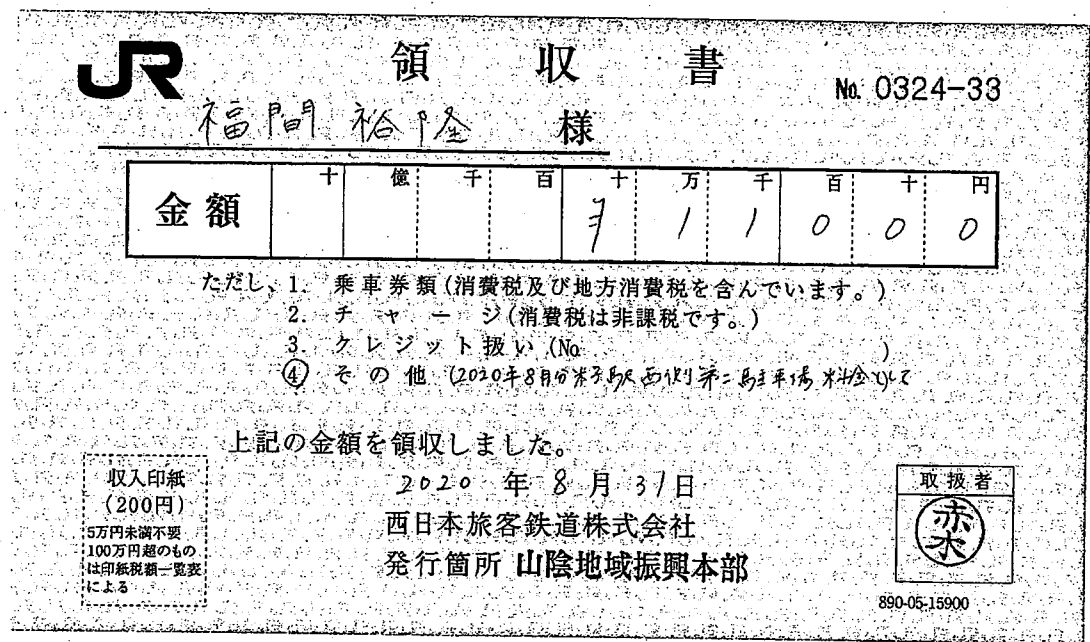 JR 領収書 No. 0324-33
福間 裕隆 様
金額 十 億 千 百 十 万 千 百 十 円
¥ 1 1 0 0 0
ただし、1. 乗車券類(消費税及び地方消費税を含んでいます。)
2. チャージ(消費税は非課税です。)
3. クレジット扱い(No. )
④ その他(2020年8月分米子駅西側第二駐車場料金として
上記の金額を領収しました。
2020年8月31日
西日本旅客鉄道株式会社
発行箇所 山陰地域振興本部
収入印紙
(200円)
5万円未満不要
100万円超のもの
は印紙税額一覧表
による
取扱者
赤水
890-05-15900